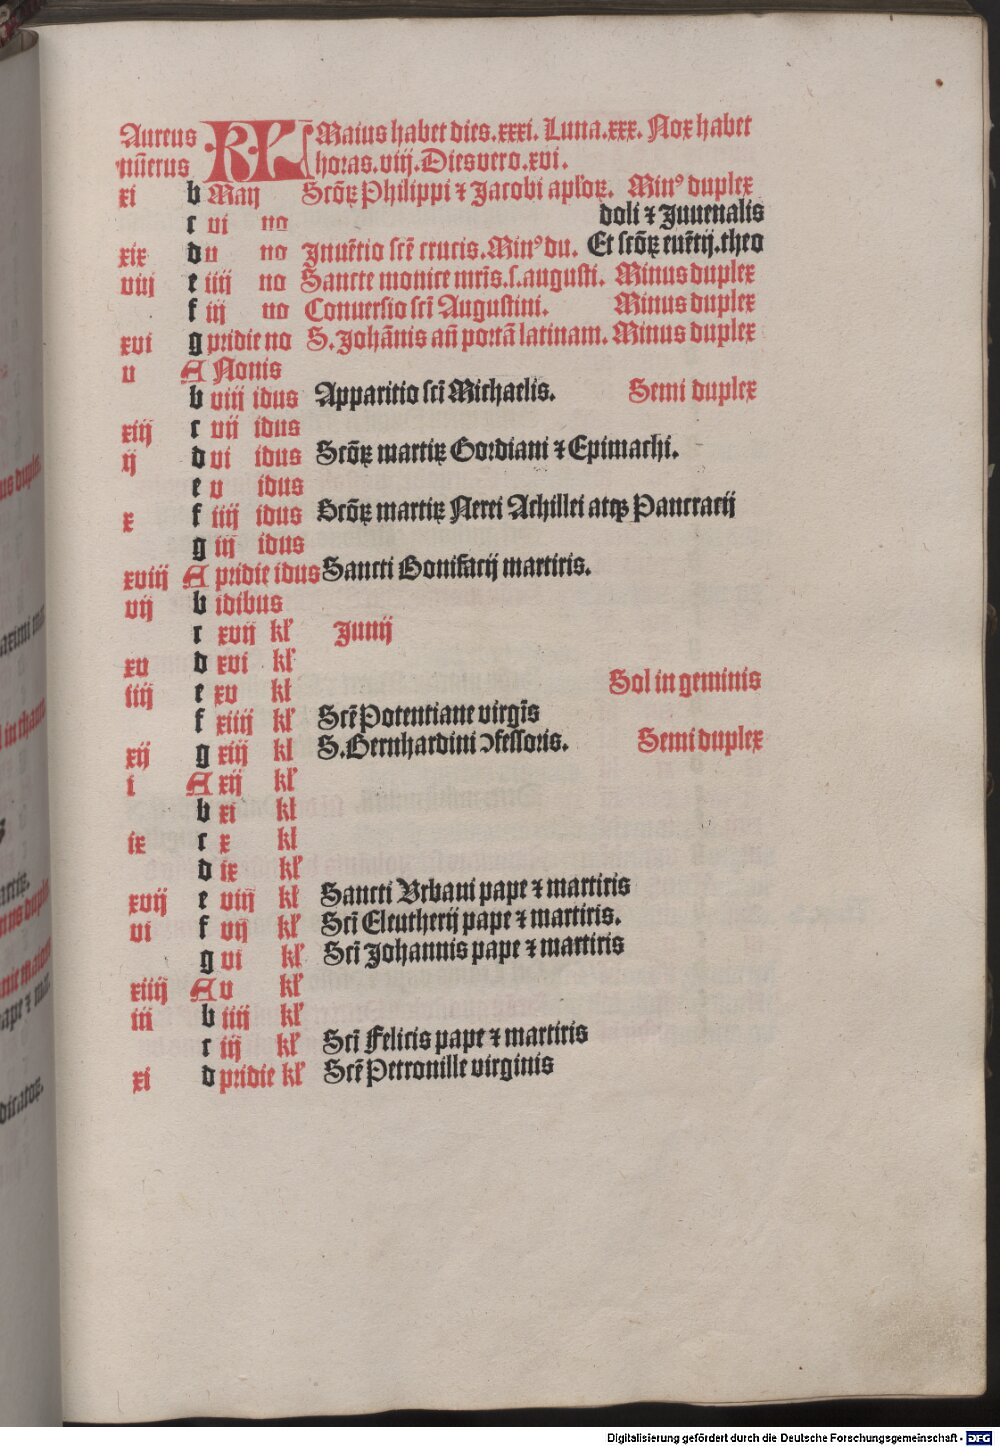 Aureus KL Maius habet dies.xxxi. Luna.xxx. Nox habet
nũerus horas.viij. Dies vero.xvi.
xi b Maij Scõꝝ Philippi ⁊ Jacobi apl'oꝝ. Min⁹ duplex
c vi no doli ⁊ Juuenalis
xix d v no Inuẽtio scẽ crucis. Min⁹ du. Et scõꝝ euẽtij.theo
viij e iiij no Sancte monice mr̃is.s.augusti. Minus duplex
f iij no Conuersio scĩ Augustini. Minus duplex
xvi g pridie no S. Johãnis añ portã latinam. Minus duplex
v A Nonis
b viij idus Apparitio scĩ Michaelis. Semi duplex
xiij c vij idus
ij d vi idus Scõꝝ martiꝝ Gordiani ⁊ Epimachi.
e v idus
x f iiij idus Scõꝝ martiꝝ Nerei Achillei atqꝫ Pancracij
g iij idus
xviij A pridie idus Sancti Bonifacij martiris.
vij b idibus
c xvij kl' Junij
xv d xvi kl'
iiij e xv kl Sol in geminis
f xiiij kl' Scẽ Potentiane virgĩs
xij g xiij kl S. Bernhardini ↄfessoris. Semi duplex
i A xij kl'
b xi kl
ix c x kl
d ix kl'
xvij e viij kl' Sancti Vrbani pape ⁊ martiris
vi f vij kl' Scĩ Eleutherij pape ⁊ martiris.
g vi kl' Scĩ Johannis pape ⁊ martiris
xiiij A v kl'
iii b iiij kl'
c iij kl' Scĩ Felicis pape ⁊ martiris
xi d pridie kl' Scẽ Petronille virginis
Digitalisierung gefördert durch die Deutsche Forschungsgemeinschaft - DFG